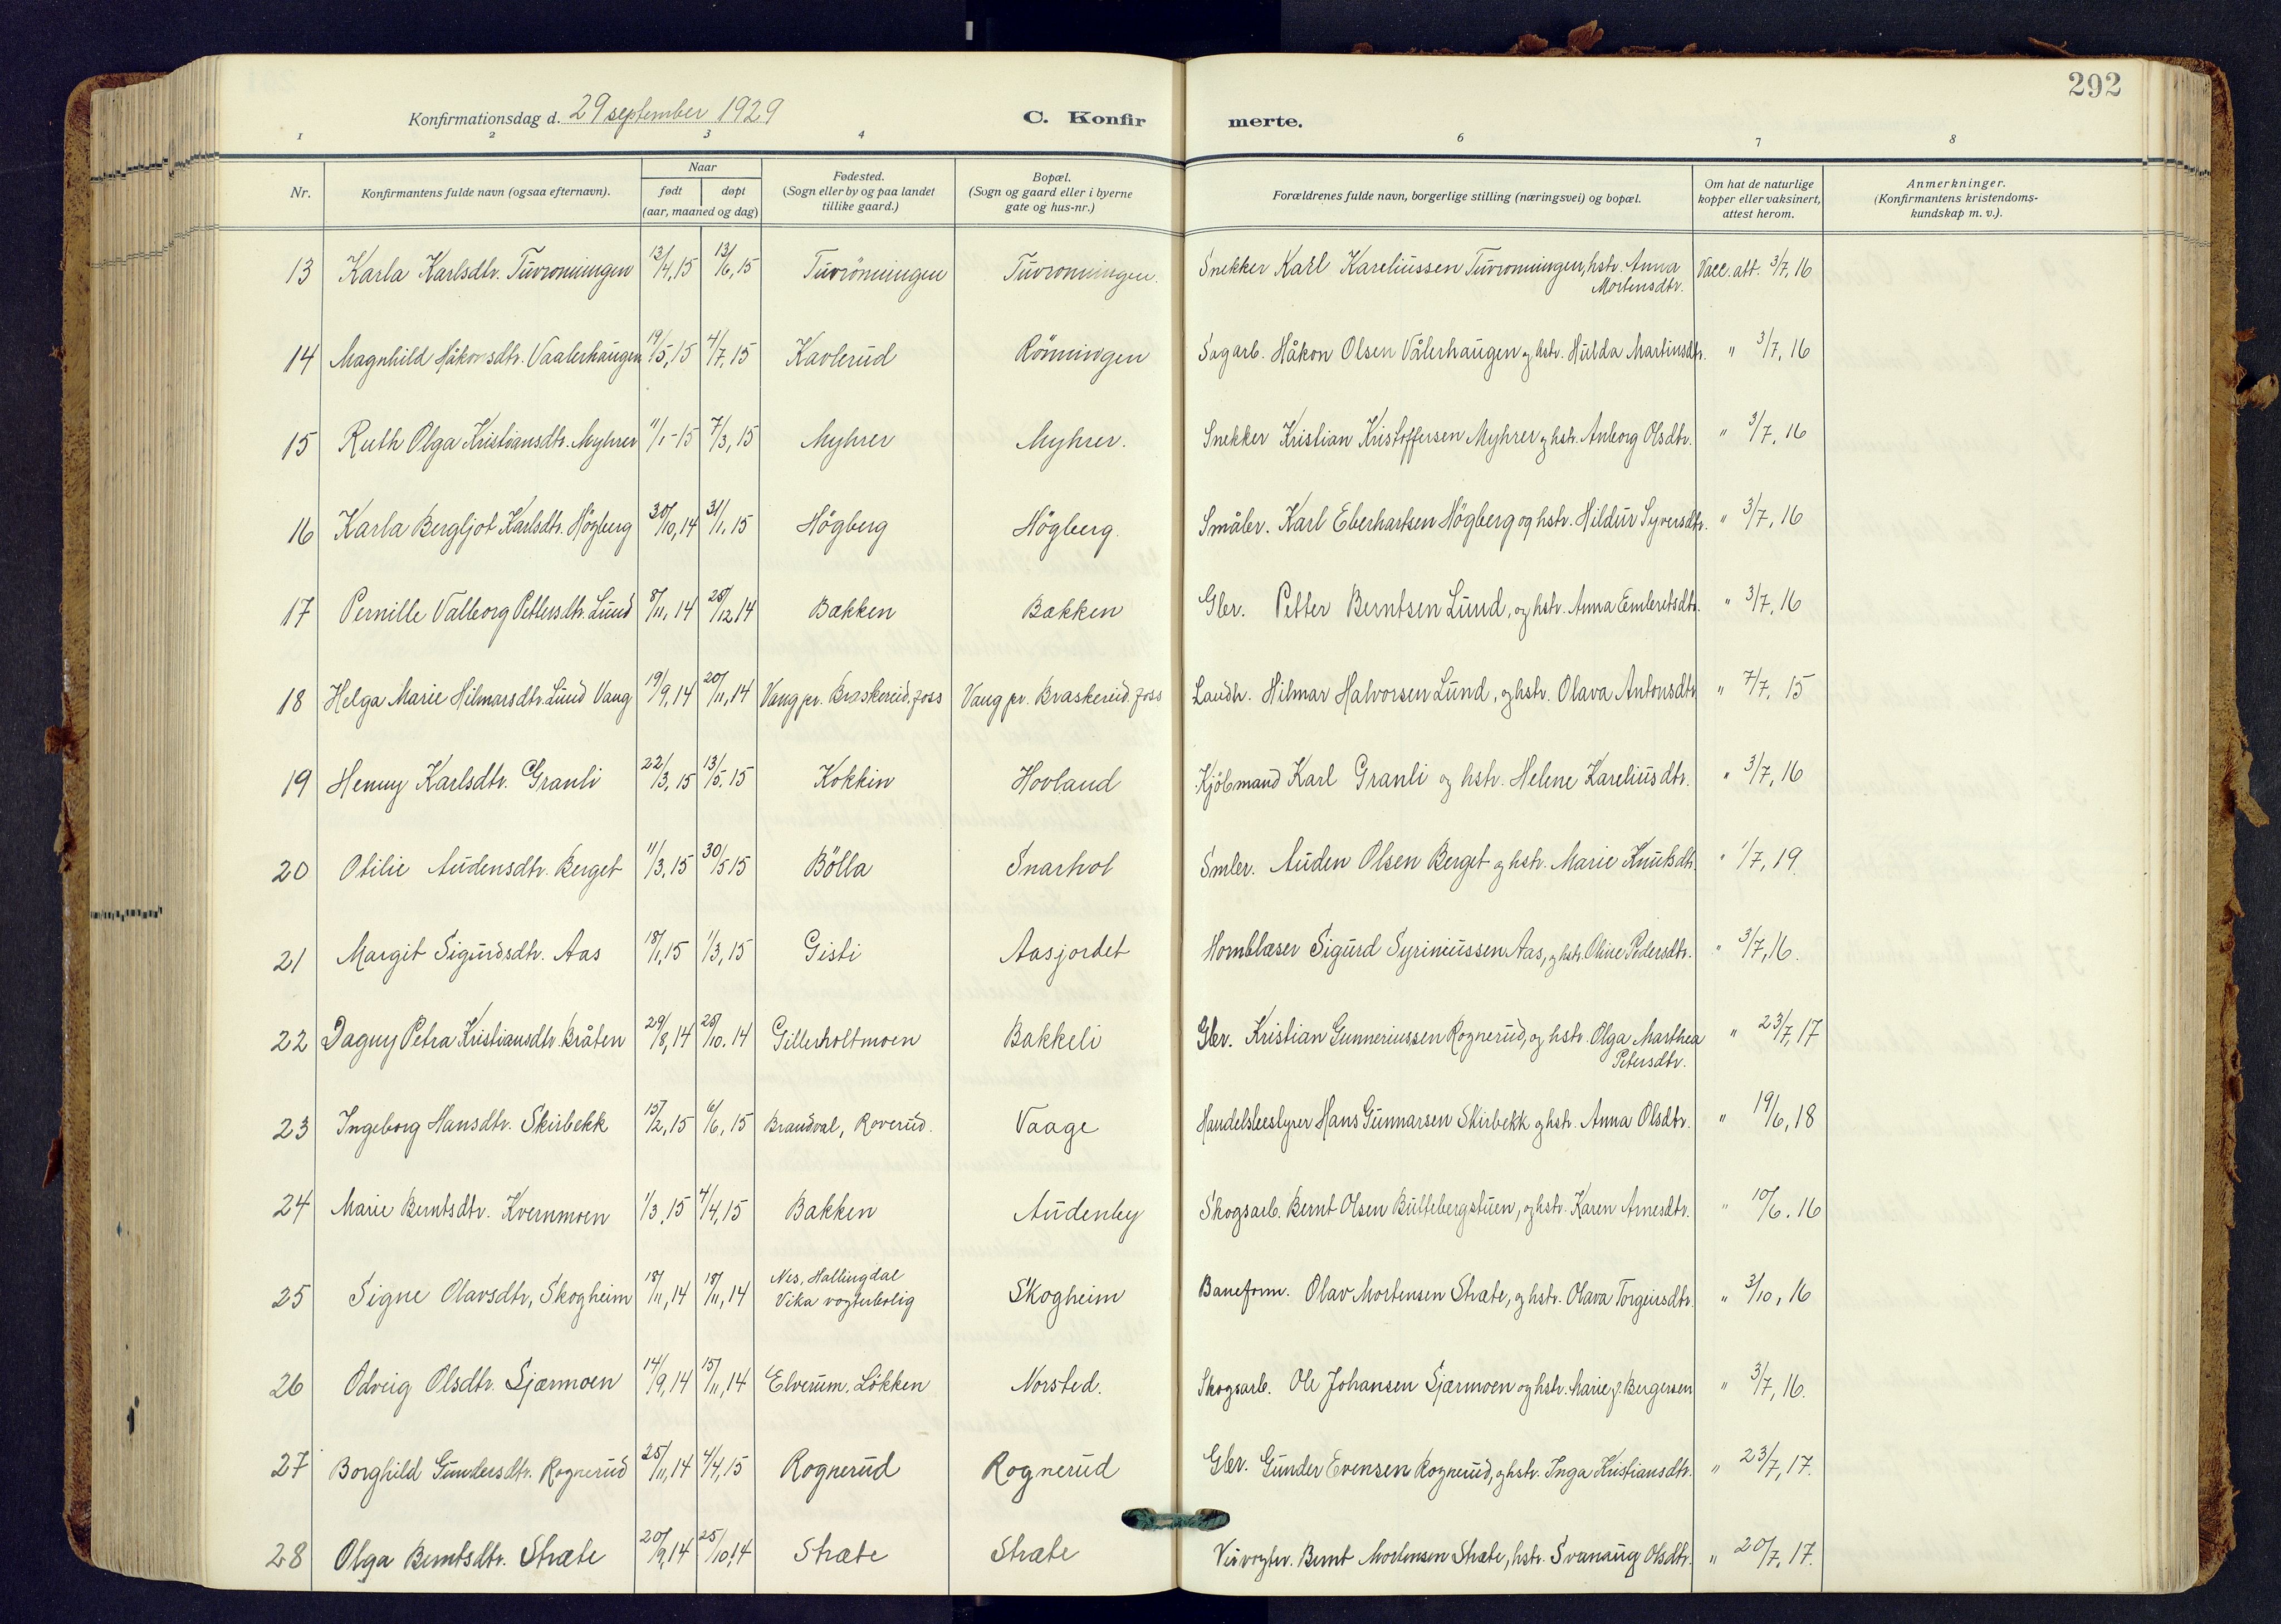 292
Konfirmationsdag d. 29 september 1929
C. Konfir merte.
1 2 3 4 6 7 8
Nr.
Konfirmantens fulde navn (ogsaa efternavn).
Naar
født
døpt
(aar, maaned og dag)
Fødested.
(Sogn eller by og paa landet
tillike gaard.)
Bopæl.
(Sogn og gaard eller i byerne
gate og hus-nr.)
Forældrenes fulde navn, borgerlige stilling (næringsvei) og bopæl.
Om hat de naturlige
kopper eller vaksinert,
attest herom.
Anmerkninger.
(Konfirmantens kristendoms-
kundskap m. v.).
13 Karla Karlsdtr. Tuvronningen 12/4, 15 13/6, 15 Tuvrönningen Tuvronningen. Snekker Karl Kareliussen Tuvronningen, hstr. Anna Vacc. att. 3/7, 16
Mortensdtr.
14 Magnhild Håkonsdtr. Vaalerhaugen 19/5, 15 4/7, 15 Kavlerud Rönningen Sagarb. Håkon Olsen Vålerhaugen og hstr. Hulda Martinsdtr. " 3/7, 16
15 Ruth Olga Kristiansdtr. Myhrer 11/1-15 7/3, 15 Myhrer Myhrer. Snekker Kristian Kristoffersen Myhrer og hstr. Anborg Olsdtr. " 3/7, 16
16 Karla Bergljot Karlsdtr. Högberg 30/10, 14 31/1, 15 Högberg Högberg. Småbr. Karl Eberhartsen Högberg og hstr. Hildur Syversdtr. " 3/7, 16
17 Pernille Valborg Pettersdtr. Lund 8/11, 14 28/12 14 Bækken Bækken Gbr. Petter Berntsen Lund, og hstr. Anna Embretsdtr. " 3/7, 16
18 Helga Marie Hilmarsdtr. Lund Vang 19/9, 14 20/11, 14 Vang pr. Braskereid.foss Vang pr. Braskereid.foss Landh. Hilmar Halvorsen Lund, og hstr. Olava Antonsdtr " 7/7, 15
19 Henny Karlsdtr. Granli 22/3, 15 13/5, 15 Kokkin Hovland Kjöbmand Karl Granli og hstr. Helene Kareliusdtr. " 3/7, 16
20 Otilie Audensdtr. Berget 11/3, 15 30/5 15 Bölla Snarhol Smbr. Auden Olsen Berget og hstr. Marie Knutsdtr. " 1/7, 19.
21 Margit Sigurdsdtr. Aas 18/1, 15 1/3, 15 Gisti Aasjordet Hornblæser Sigurd Syriniussen Aas, og hstr. Oline Pedersdtr. " 3/7, 16.
22 Dagny Petra Kristiansdtr. Bråten 29/8, 14 25/10. 14 Gillerholtmoen Bakkeli Gbr. Kristian Gunneriussen Rognerud, og hstr. Olga Marthea " 23/7, 17
Petersdtr.
23 Ingeborg Hansdtr. Skirbekk 15/2, 15 6/6, 15 Brandval, Roverud. Vaage Handelsbestyrer Hans Gunnarsen Skirbekk og hstr. Anna Olsdtr. " 19/6, 18
24 Marie Berntsdtr. Kvernmoen 1/3, 15 4/4, 15 Bakken Audenby Skogsarb. Bernt Olsen Bultebergstuen, og hstr. Karen Arnesdtr. " 10/6. 16
25 Signe Olavsdtr, Skogheim 18/11, 14 18/11, 14 Nes, Hallingdal
Vika vogterbolig Skogheim Baneform. Olav Mortensen Stræte, og hstr. Olava Torgeirsdtr. " 3/10, 16
26 Odveig Olsdtr. Sjærmoen 14/9, 14 15/11, 14 Elverum, Lökken Norsted. Skogsarb. Ole Johansen Sjærmoen og hstr. Marie J. Bergersen " 3/7, 16.
27 Borghild Gundersdtr. Rognerud 25/11, 14 4/4, 15 Rognerud Rognerud Gbr. Gunder Evensen Rognerud, og hstr. Inga Kristiansdtr. " 23/7, 17.
28 Olga Berntsdtr. Stræte 20/9, 14 25/10 14 Stræte Stræte Bernt Mortensen Stræte, hstr. Svanaug Olsdtr. " 20/7, 17.